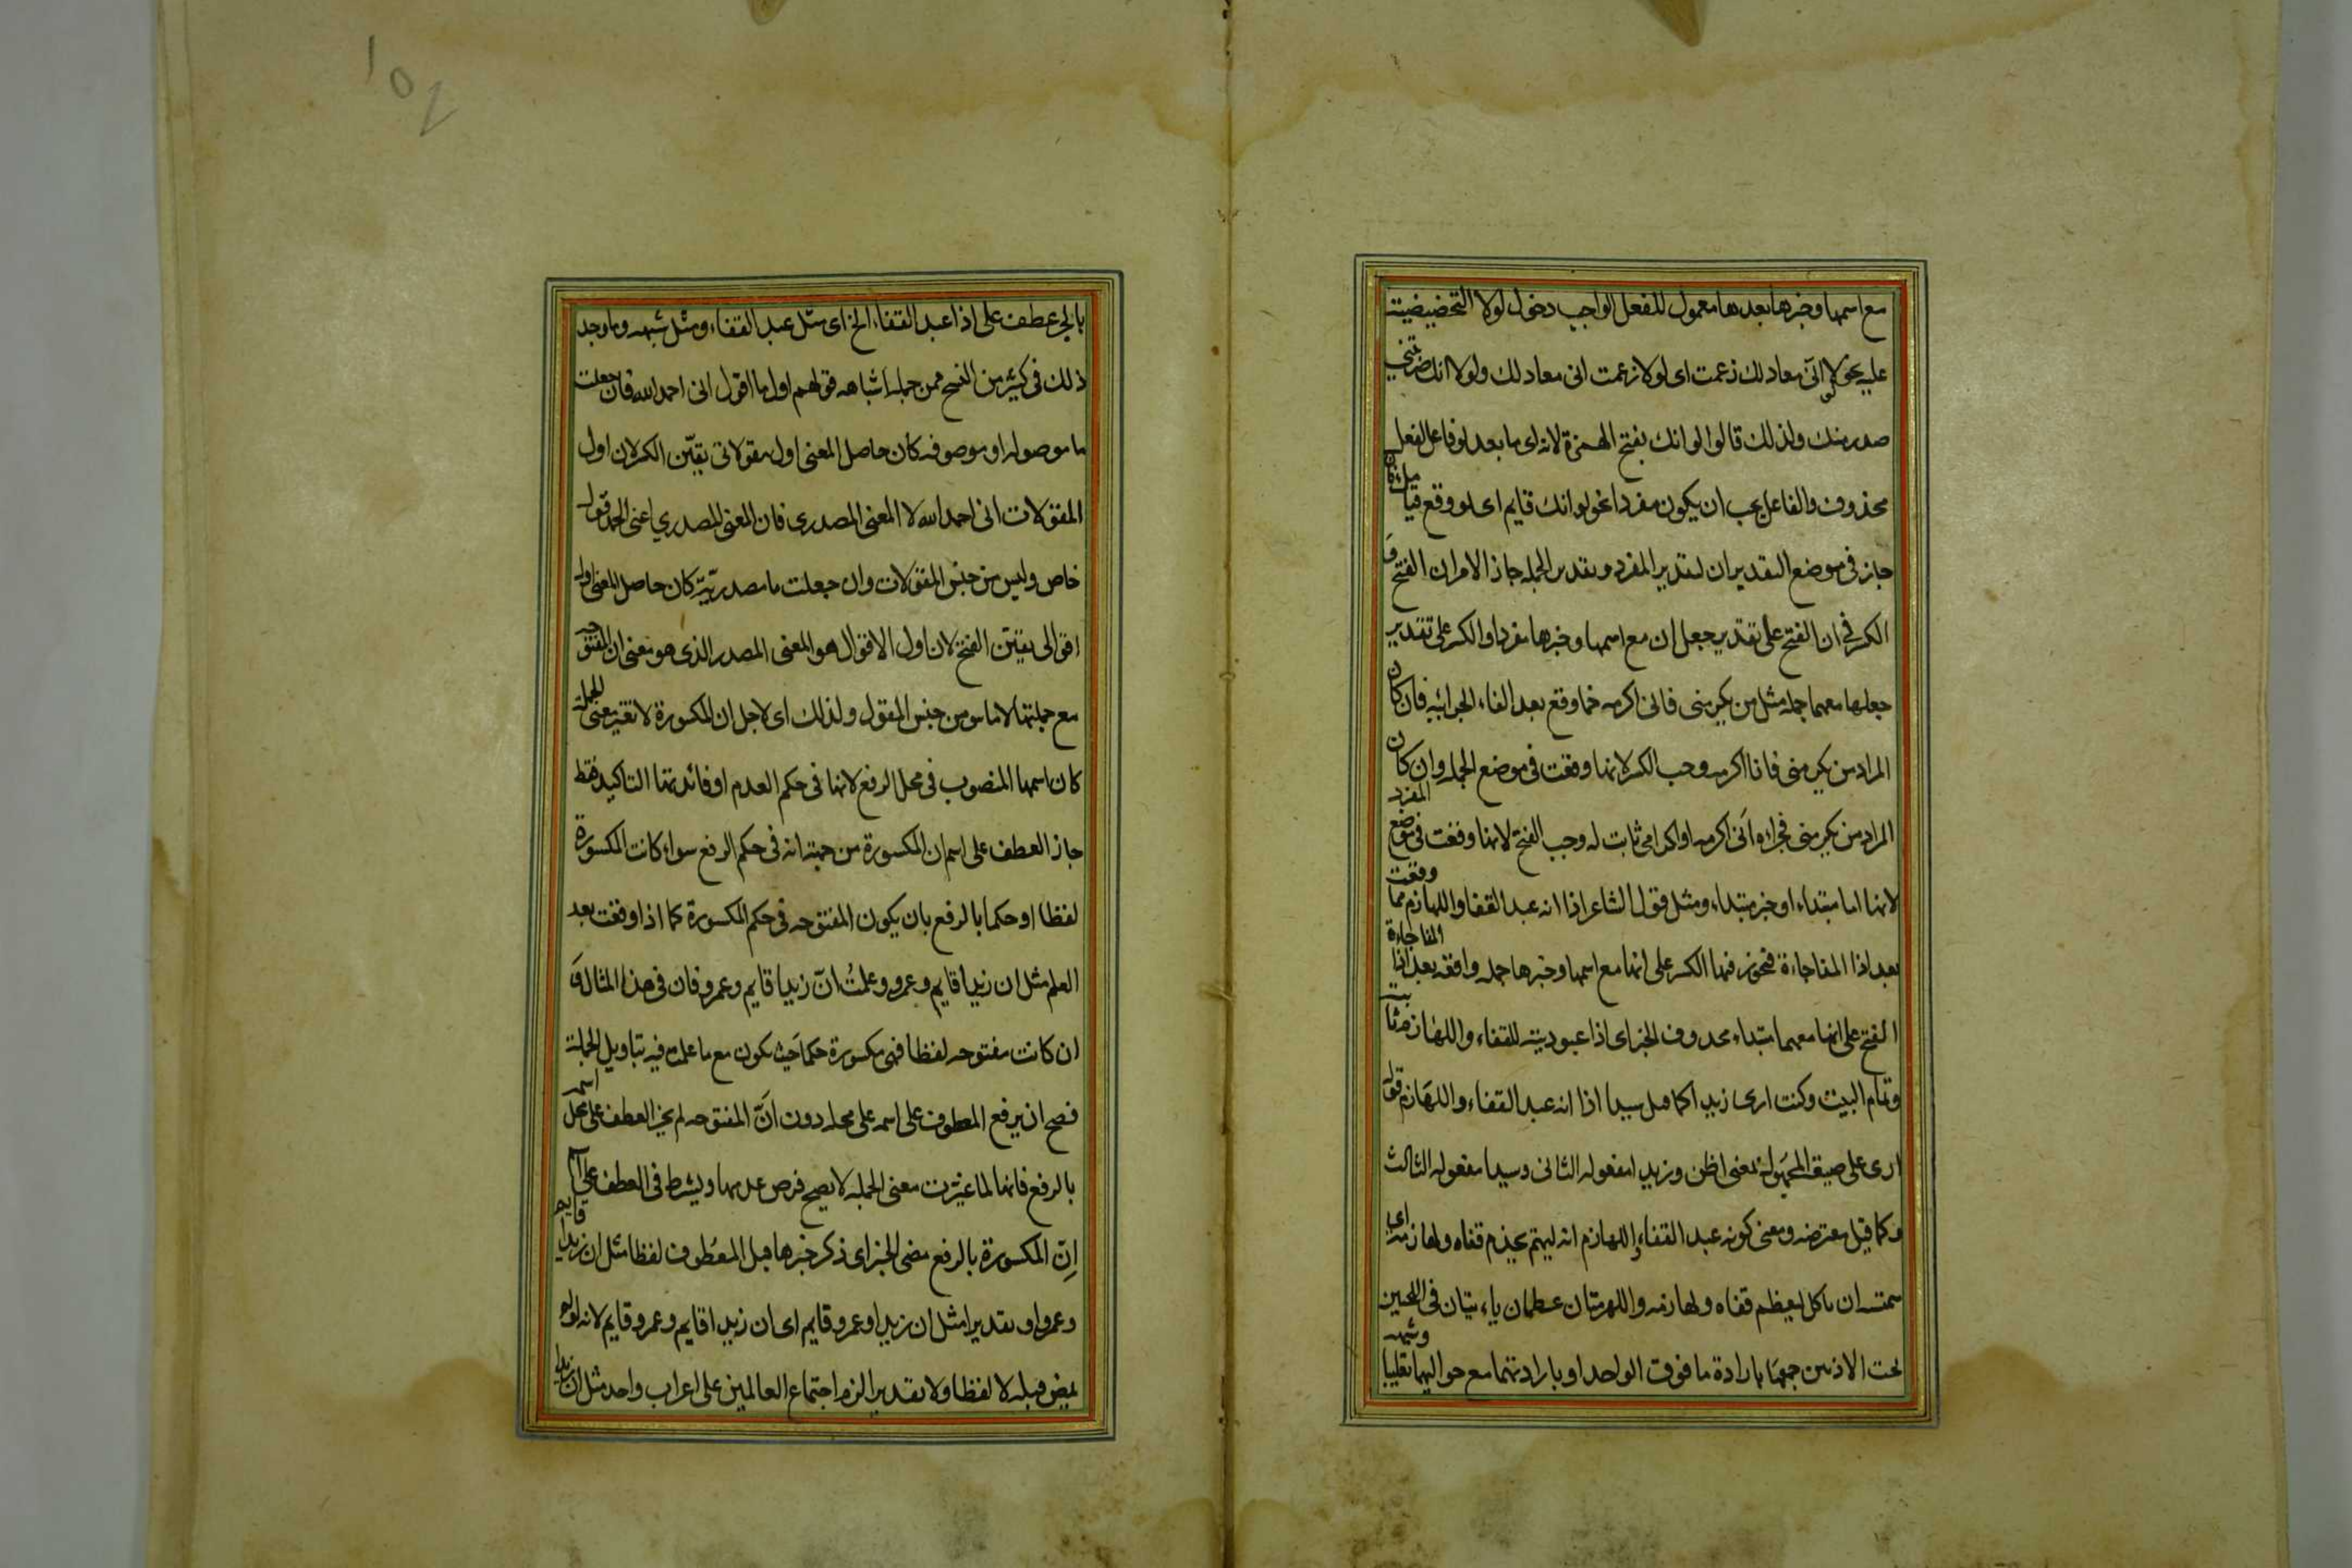 مع اسمها وخبرها بعدها معمول للفعل الواجب دخول لولا التحضيضية
عليه نحو لولا انى معاد لك زعمت اى لولا زعمت انى معاد لك ولولا انك ضربتنى
صدر منك ولذلك قالوا لو انك بفتح الهمزة لانه اى ما بعد لو فاعل لفعل
محذوف والفاعل يجب ان يكون مفردا نحو لو انك قايم اى لو وقع قيامك فان
جاز فى موضع التقديران تقدير المفرد وتقدير الجمله جاز الامران الفتح و
الكسر فى ان الفتح على تقدير جعل ان مع اسمها وخبرها مفردا والكسر على تقدير
جعلها معهما جملة مثل من يكرمنى فانى اكرمه مما وقع بعد الفاء الجزائيه فان كان
المراد من يكرمنى فانا اكرمه وجب الكسر لانها وقعت فى موضع الجملة وان كان
المراد من يكرمنى فجزاءه انى اكرمه او اكرامى ثابت له وجب الفتح لانها وقعت فى موضع المفرد
لانها اما مبتداء او خبر مبتداء ومثل قول الشاعر اذا انه عبد القفا واللهازم مما وقعت
بعد اذا المفاجاءة فيجوز فيها الكسر على انها مع اسمها وخبرها جمله واقعه بعد اذا المفاجاءة
الفتح على انها معهما مبتداء محذوف الخبر اى اذا عبوديته للقفاء واللهازم ثابتة
وتمام البيت وكنت ارى زيدا كما قيل سيدا اذا انه عبد القفاء واللهازم قوله
ارى على صيغة المجهول بمعنى اظن وزيدا مفعوله الثانى وسيدا مفعوله الثالث
وكما قيل معترضه ومعنى كونه عبد القفاء واللهازم انه ليئم يخدم قفاه ولهازمه اى
همته ان ياكل ليعظم قفاه ولهازمه واللهزمتان عظمان ناءتيان فى اللحيين
تحت الاذنين جمعها بارادة ما فوق الواحد او بارادتهما مع حواليهما تغليبا وشبهه
بالجر عطف على اذا عبد القفاء الخ اى مثل عبد القفاء ومثل شبهه وما وجد
ذلك فى كثير من النسخ فمن جملة اشباهه قولهم اول ما اقول انى احمد الله فان جعلت
ما موصوله او موصوفه كان حاصل المعنى اول مقولاتى تعيّن الكسر لان اول
المقولات انى احمد الله لا المعنى المصدرى فان المعنى المصدرى اعنى الحمد قول
خاص وليس من جنس المقولات وان جعلت ما مصدريّة كان حاصل المعنى اول
اقوالى تعيّن الفتح لان اول الاقوال هو المعنى المصدر الذى هو معنى ان المفتوحة
مع جملتها لا ما هو من جنس المقول ولذلك اى لاجل ان المكسورة لا تغير معنى الجملة
كان اسمها المنصوب فى محل الرفع لانها فى حكم العدم اذ فائدتها التاكيد فقط
جاز العطف على اسم ان المكسورة من جهته انه فى حكم الرفع سواء كانت المكسورة
لفظا او حكما بالرفع بان يكون المفتوحه فى حكم المكسورة كما اذا وقعت بعد
العلم مثل ان زيدا قايم وعمرو وعلمتُ انّ زيدا قايم وعمرو فان فى هذا المثال و
ان كانت مفتوحه لفظا فهى مكسورة حكما حيث يكون مع ما عمله فيه بتاويل الجملة
فصح ان يرفع المعطوف على اسمه على محله دون انّ المفتوحه لم يجز العطف على محل اسمه
بالرفع فانها لما غيّرت معنى الجمله لا يصح فرض عدمها ويشترط فى العطف على اسم
اِنّ المكسورة بالرفع مضى الخبر اى ذكر خبرها قبل المعطوف لفظا مثل ان زيدا قايم
وعمرو او تقديرا مثل ان زيدا وعمرو قايم اى ان زيدا قايم وعمرو قايم لانه لو لم
يمض قبله لا لفظا ولا تقديرا لزم اجتماع العاملين على اعراب واحد مثل ان زيدا
102